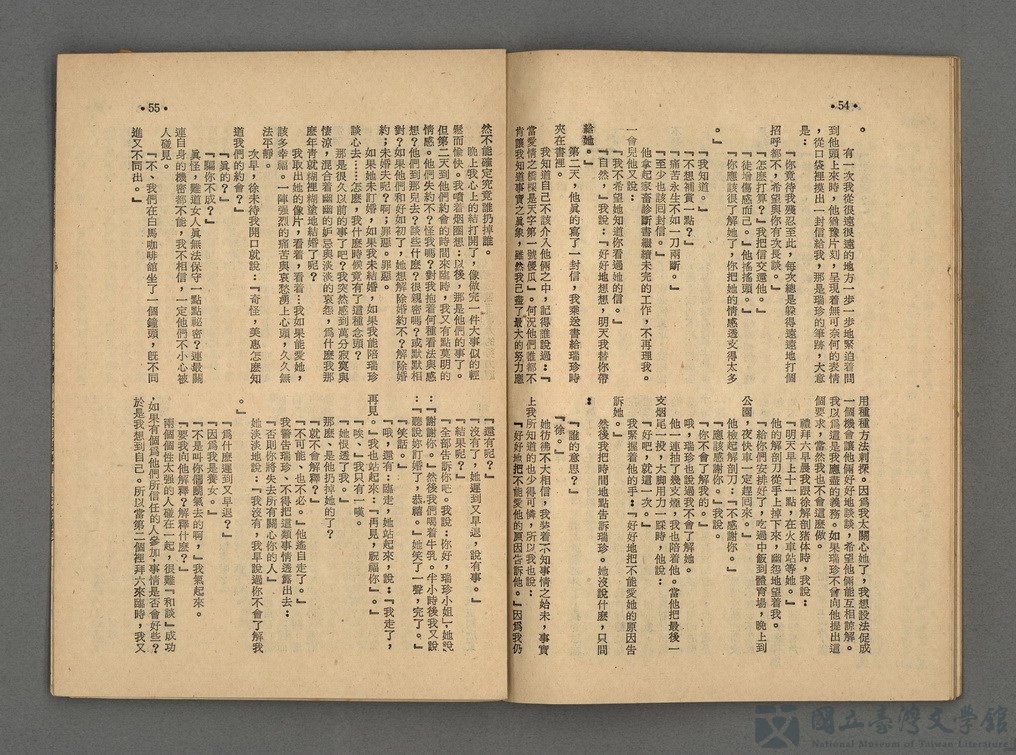 •54•
有一次我從很遠很遠的地方一步一步地緊迫着問
到他頭上來時，他猶豫片刻，呈現着無可奈何的表情
，從口袋裡摸出一封信給我，那是瑞珍的筆跡，大意
是：
『你竟待我殘忍至此，每次總是躱得遠遠地打個
招呼都不，希望與你有次長談。』
『怎麽打算？』我把信交還他。
『徒增傷感而已。』他搖搖頭。
『你應該很了解她了，你把她的情感透支得太多
。』
『我知道。』
『不想補貫一點？』
『痛苦永生不如一刀兩斷。』
『至少也該回封信。』
他拿起家畜診斷書繼續未完的工作，不再理我。
一會兒他又說：
『我不希望她知道你看過她的信。』
『自然，』我說：『好好地想想，明天我替你帶
給她。』
第二天，他眞的寫了一封信，我乘送書給瑞珍時
夾在書裡。
我知道自己不該介入他倆之中，記得誰說過：『
當愛情之橋樑是天字第一號傻瓜。』何況他們誰都不
肯讓我知道事實之眞象，雖然我已盡了最大的努力應
用種種方法刺探。因爲我太關心她了，我想設法促成
一個機會讓他倆好好地談談，希望他倆能互相諒解。
我以爲這是我應盡的義務。如果瑞珍不曾向他提出這
個要求，當然我也不會這麽做。
禮拜六早晨我跟徐解剖猪体時，我說：
『明天早上十一點，在火車站等她。』
他的解剖刀從手上掉下來，幽怨地望着我。
『給你們安排好了，吃過中飯到體育場，晚上到
公園，夜快車一定趕囘來。』
他檢起解剖刀：『不感謝你。』
『應該感謝你。』我說。
『你不會了解我的。』
哦，瑞珍也說過我不會了解她。
他一連抽了幾支煙，我也陪着他。當他把最後一
支烟尾一投，大脚用力一踩時，他說：
『好吧，就這一次。』
我緊握着他的手：『好好地把不能愛她的原因告
訴她。』
然後我把時間地點告訴瑞珍。她沒說什麽，只問
：
『誰的意思？』
『徐。』
她彷彿不大相信，我裝着不知事情之始末，事實
上我所知道的也少得可憐，所以我也說：
『好好地把不能愛他的原因告訴他。』因爲我仍
•55•
然不能確定究竟誰扔掉誰。
晚上我心上的結打開了，像做完一件大事似的輕
鬆而愉快。我噴着烟圈想：以後，那是他們的事了。
但第二天到他們約會的時間來臨時，我又有點莫明的
情感。他們失約不？怪我嗎？對我抱着何種看法與感
想？他們到那兒去？談些什麽？很親密嗎？或默默相
對？如果他們和好如初了，她想解除婚約不？解除婚
約；未婚夫呢？啊；罪惡。罪惡。
如果她未訂婚，如果我未結婚，如果我能陪瑞珍
談心去……怎麽，我什麽時候竟有了這種念頭？
那是很久以前的事了吧？我突然感到萬分寂寞與
悽涼，混合着幽幽的妒忌與淡淡的哀怨，爲什麽我那
麽年靑就糊裡糊塗地結婚了呢？
我取出她的像片，看着，看着…我如果能愛她，
該多幸福。一陣强烈的痛苦與哀愁湧上心頭，久久無
法平靜。
次早，徐未待我開口就說：『奇怪，美惠怎麽知
道我們的約會？』
『眞的？』
『關你不成？』
眞怪，難道女人眞無法保守一點點祕密？連最關
連自身的機密都不能，我不相信，一定他們不小心被
人碰見。
『不、我們在白馬咖啡舘坐了一個鐘頭，旣不同
進又不同出。』
『還有呢？』
『沒有了，她遲到又早退，說有事。』
『結果呢？』
『全部告訴你吧。我說：你好，瑞珍小姐，她說
：謝謝你。然後我們喝着牛乳。半小時後我又說
：聽說妳訂婚了，恭禧。她笑了一聲，完了。』
『笑話。』
『哦，還有：臨走，她站起來，說：『我走了，
再見。』我也站起來：『再見，祝福你』。』
『唉，』我只有一嘆。
『她恨透了我。』
那麽、是他扔掉她的了？
『就不會解釋？』
『不可能、也不必。』他逕自走了。
我警告瑞珍、不得把這類事情透露出去：
『否則你將失去所有關心你的人』
她淡淡地說：『我沒有，我早說過你不會了解我
。』
『爲什麽遲到又早退？』
『因爲我是養女。』
『不是叫你個關氣去的啊，』我氣起來。
『要我向他解釋？』
兩個個性太强的人碰在一起，很難『和談』成功
，如果有個爲他們所信任的人參加，事情是否會好些？
於是我想到自己。所以當第二個裡拜六來臨時，我又
國立臺灣文學館
National Museum of Taiwan Literature